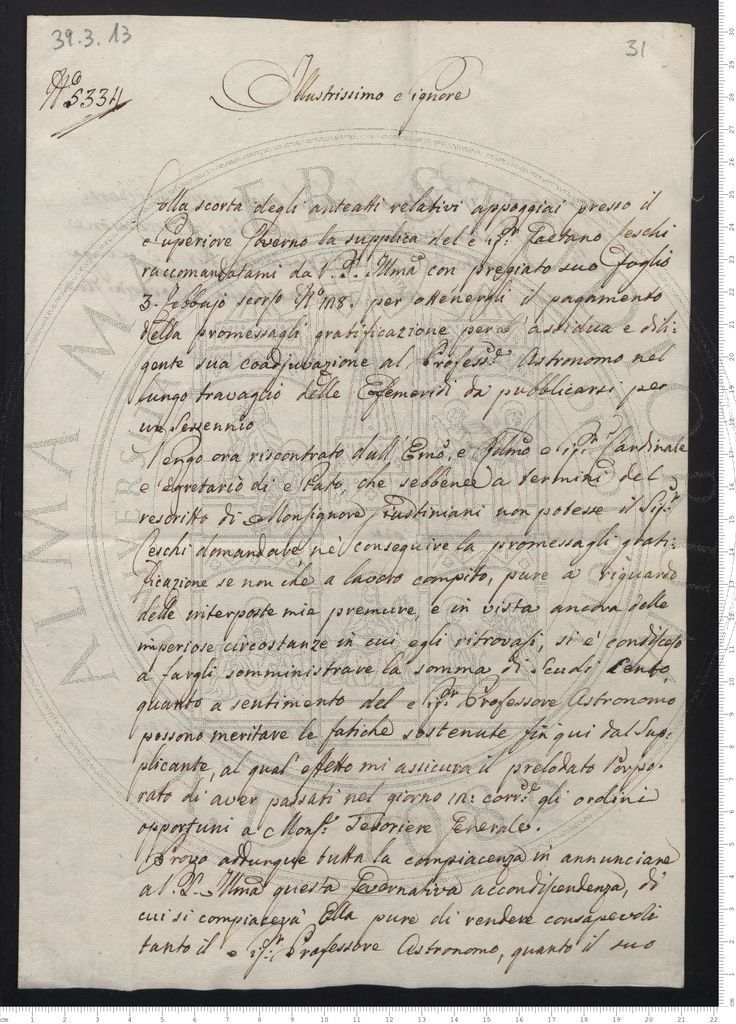 39.3.13
31
No 5334
Illustrissimo Signore
Colla scorta degli anteatti relativi appoggiai presso il
Superiore Governo la supplica del Sigr. Gaetano Ceschi
raccomandatami da V. S. Illma con pregiato suo foglio
3. Febbajo scorso No 118. per ottenergli il pagamento
della promessagli gratificazione per l'assidua e dili-
gente sua coadjuvazione al Professe Astronomo nel
lungo travaglio delle Efemeridi da pubblicarsi per
un Sessennio
Vengo ora riscontrato dall'Emo, e Rmo Sigr. Cardinale
Segretario di Stato, che sebbene a termini del
rescritto di Monsignore Giustiniani non potesse il Sigr.
Ceschi domandare nè conseguire la promessagli grati-
ficazione se non che a lavoro compito, pure a riguardo
delle interposte mie premure, e in vista ancora delle
imperiose circostanze in cui egli ritrovasi, si è condisceso
a fargli somministrare la somma di Scudi Cento,
quanto a sentimento del Sigr. Professore Astronomo
possono meritare le fatiche sostenute fin qui dal Sup-
plicante, al qual'effetto mi assicura il prelodato Porpo-
rato di aver passati nel giorno 12: corre. gli ordini
opportuni a Monsr. Tesoriere Generale.
Provo addunque tutta la compiacenza in annunciare
a V. S. Illma questa Governativa accondiscendenza, di
cui si compiacerà Ella pure di rendere consapevoli
tanto il Sigr. Professore Astronomo, quanto il suo